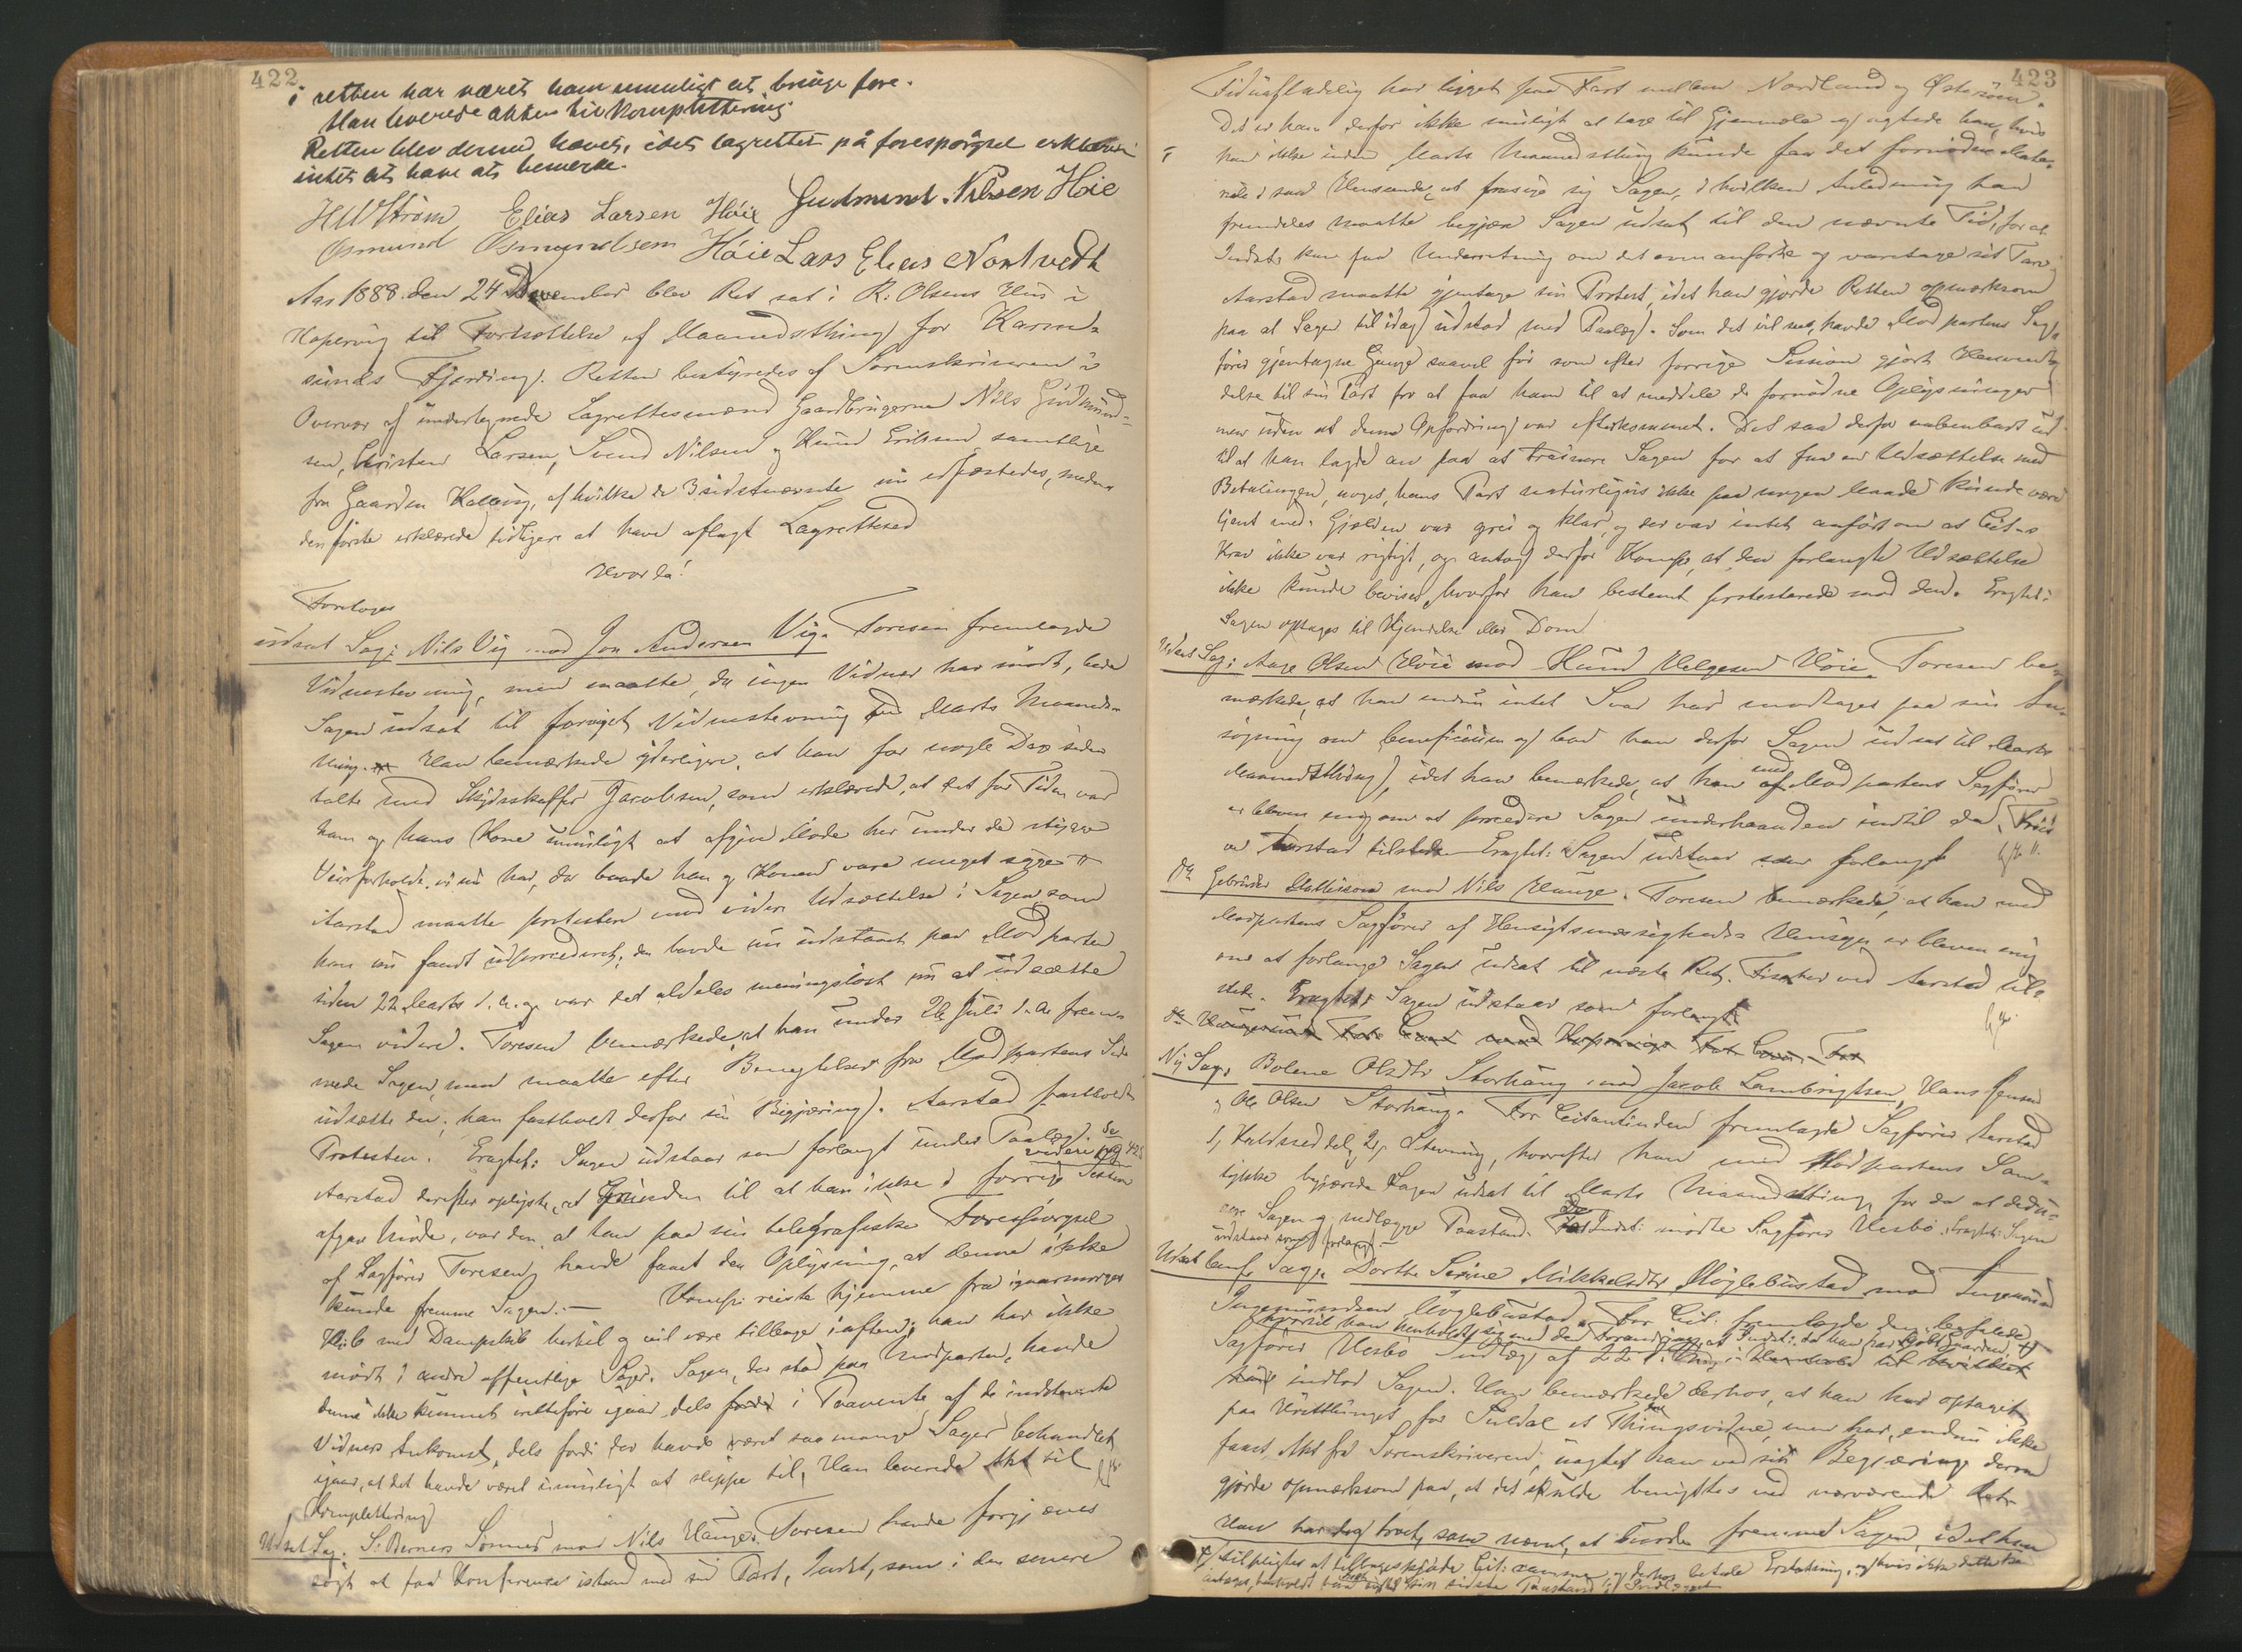 422
i retten har været ham umuligt at bringe fore.
Han leverede akten til komplettering
Retten blev dermed hævet, idet lagrettet på forespørgsel erklærer
intet at have at bemerke.
Elias Larsen Höie Gudmund Nilsen Höie
Osmund Osmundsen Höie Lars Elias Nordtvedt
Aar 1888 den 24 November blev Ret sat i R. Olsens Hus i
Kopervig til Fortsættelse af Maanedsthing for Karm-
sunds Fjerding. Retten bestyredes af Sorenskriveren i
Overvær af undertegnede Lagrettesmænd Gaardbrugerne Nils Gudmund-
sen, Kristen Larsen, Svend Nilsen og Knud Eriksen samtlige
fra Gaarden, af hvilke de 3 sidstnævnte nu edfæstedes, medens
den første erklærede tidligere at have aflagt Lagrettesed
Hvorda!
Foretoges
udsat Sag: Nils Vig mod Jon Andersen Vig. Toresen fremlagde
Vidnestevning, men maatte, da ingen Vidner har mødt, bede
Sagen udsat til fornyet Vidnestevning til Marts Maaneds-
thing. Han bemærkede yderligere, at han for nogle Dage siden
talte med Skydsskaffer Jacobsen, som erklærede, at det for Tiden var
ham og hans Kone umuligt at afgive Møde her under de
Veirforholde vi nu har, da baade han og Konen vare meget syge
Aarstad maatte protestere mod videre Udsættelse i Sagen, som
han nu fandt udproceduret, den havde nu udstaaet paa Modparten
siden 22 Marts d. A. og var det aldeles meningsløst nu at udsætte
Sagen videre. Toresen bemærkede, at han under 26 Juli d. A. frem-
mede Sagen, men maatte efter Benægtelser fra Modpartens Side
udsætte den; han fastholdt derfor sin Begjæring. Aarstad fastholdt
Protesten. Eragtet: Sagen udstaar som forlangt under Paalæg. Se videre pag 425
Aarstad derefter oplyste, at Grunden til at han ikke i forrige Session
afgav Møde, var den, at han paa sin telegrafiske Forespørgsel
af Sagfører Toresen havde faaet den Oplysning, at denne ikke
kunde fremme Sagen. — Komp. reiste hjemme fra igaarmorges
Kl: 6 med Dampskib hertil og vil være tilbage iaften; han har ikke
mødt i andre offentlige Sager. Sagen, der stod paa Modparten, havde
denne ikke kunnet iretteføre igaar, dels fordi i Paavente af de indstevnte
Vidners Ankomst, dels fordi der havde været saa mange Sager behandlet
igaar, at det havde været umuligt at slippe til. Han leverede Akt til
Komplettering
Udsat Sag. S. Berners Sønner mod Nils Hauge. Toresen havde forgjæves
søgt at faa Konference istand med sin Part, Indst, som i den senere
423
Tid uafladelig har ligget paa Fart mellem Nordland og Østersøen.
Det er ham derfor ikke muligt at tage til Gjenmæle og agtede han, hvis
han ikke inden Marts Maanedsthing kunde faa det fornødne Mate-
riale i saa Henseende, at frasige sig Sagen, i hvilken Anledning han
fremdeles maatte begjære Sagen udsat til den nævnte Tid, for at
Indst: kan faa Underretning om det ovenanførte og varetage sit Tarv.
Aarstad maatte gjentage sin Protest, idet han gjorde Retten opmærksom
paa at Sagen til idag udstod med Paalæg. Som det vil sees, havde Modpartens Sag-
fører gjentagne Gange saavel før som efter forrige Session gjort Henven-
delse til sin Part for at faa ham til at meddele de fornødne Oplysninger
men uden at denne Opfordring var efterkommet. Det saa derfor aabenbart ud
til at han lagde an paa at trainere Sagen for at faa en Udsættelse med
Betalingen, noget, hans Part naturligvis ikke paa nogen Maade kunde være
tjent med. Gjælden var grei og klar, og der var intet anført om at Cit:s
Krav ikke var rigtigt, og antog derfor Komp, at den forlangte Udsættelse
ikke kunde bevises, hvorfor han bestemt protesterede mod den. Eragtet:
Sagen optages til Kjendelse eller Dom
Udsat Sag: Aage Olsen Höie mod Knud Helgesen Höie. Toresen be-
mærkede, at han endnu intet Svar har modtaget paa sin An-
søgning om beneficium og bad han derfor Sagen udsat til Marts
Maanedsthing, idet han bemærkede, at han med Modpartens Sagfører
er bleven enig om at procedere Sagen underhaanden indtil da.
ved Aarstad tilstede. Eragtet: Sagen udstaar som forlangt
Do Gebrüder Mathiesen mod Nils Hauge. Toresen bemærkede, at han med
Modpartens Sagfører af Hensigtsmæssigheds Hensyn er bleven enig
om at forlange Sagen udsat til næste Ret. ved Aarstad til-
stede. Eragtet: Sagen udstaar som forlangt
Ny Sag. Bolene Olsdtr Storhaug mod Jacob Lambrigtsen, Hans Jensen
og Ole Olsen Storhaug. For Citantinden fremlagde Sagfører Aarstad
1, Kaldsseddel, 2, Stevning, hvorefter han med Modpartens Sam-
tykke begjærede Sagen udsat til Marts Maanedsthing for da at dedu-
cere Sagen og nedlægge Paastand. For Indst: mødte Sagfører Vesbø. Eragtet: Sagen
udstaar som forlangt —
Udsat benf. Sag. Dorthe Serine Mikkelsdtr Møglebustad mod Ingemund
Ingemundsen Møglebustad. For Cit: fremlagde den befalede
Sagfører Vesbø Indlæg af 22 d. M.
indlod Sagen. Han bemærkede derhos, at han har optaget
paa Høstthinget for Suldal et Thingsvidne, men har endnu ikke
faaet Akt fra Sorenskriveren, uagtet han ved sin Begjæring derom
gjorde opmærksom paa, at det skulde benyttes ved nærværende Ret.
Han har dog troet, som nævnt, at burde fremme Sagen, idet han
tilpligtes at tilbageskjøde Cit: samme og derhos betale Erstatning, og hvis ikke dette kan
antages, sidste Paastand i Indlægget